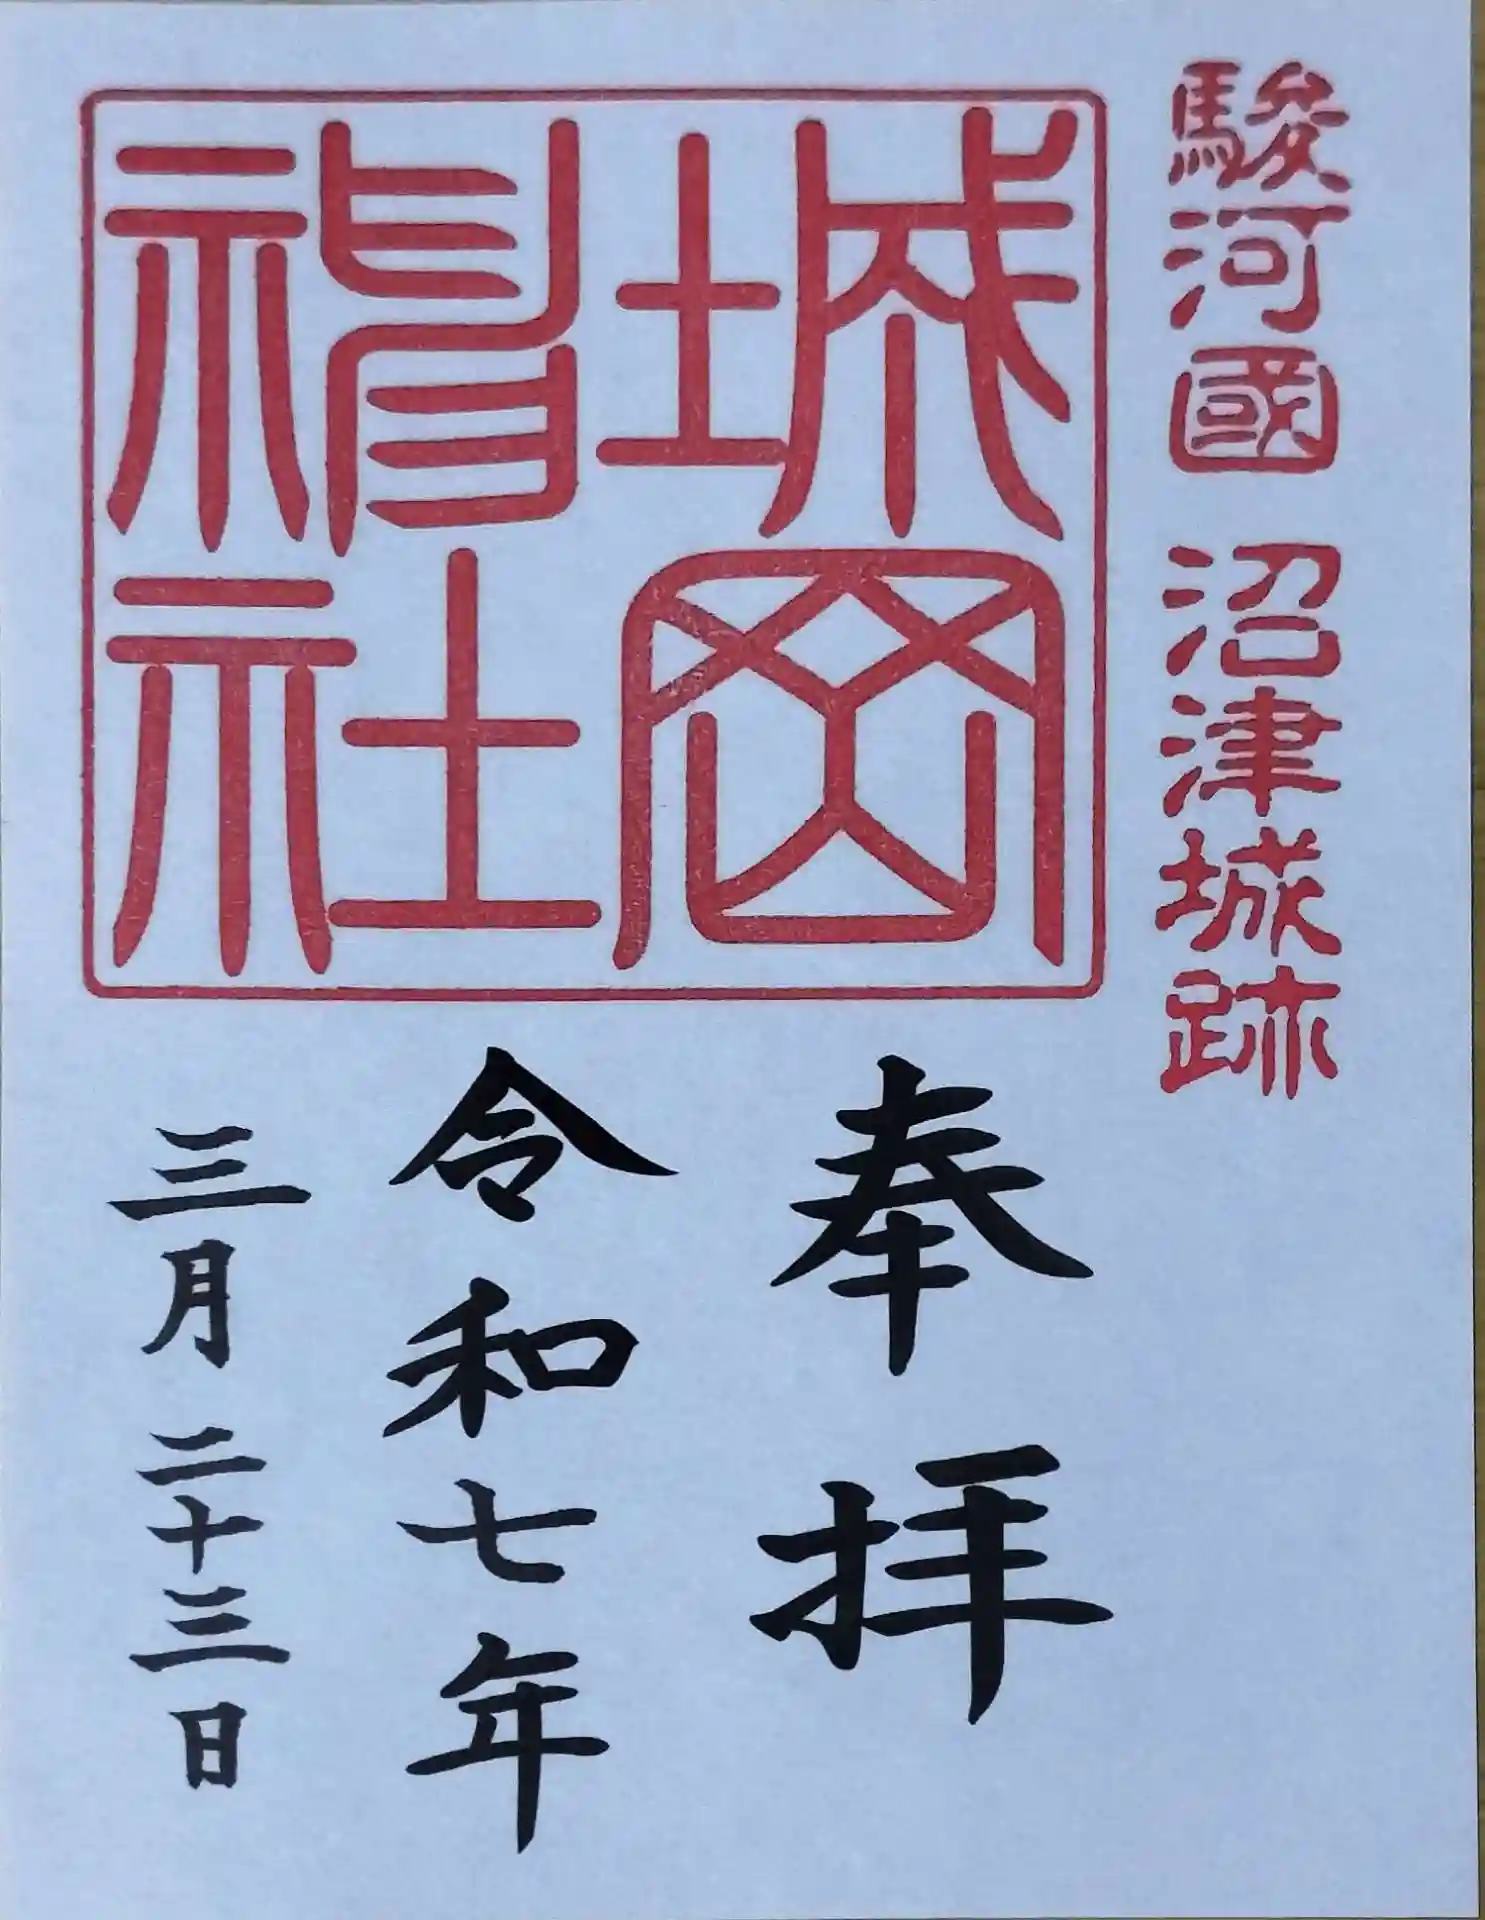 駿河國 沼津城跡
城岡
神社
奉拝
令和七年
三月二十三日